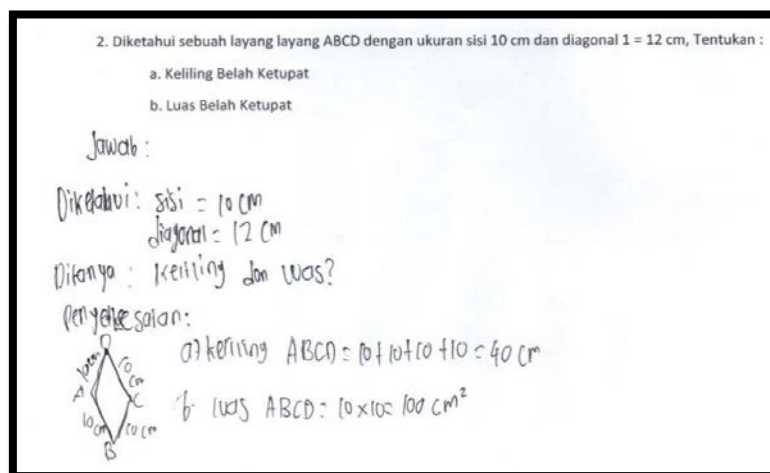 2. Diketahui sebuah layang layang ABCD dengan ukuran sisi 10 cm dan diagonal 1 = 12 cm, Tentukan :
a. Keliling Belah Ketupat
b. Luas Belah Ketupat
Jawab :
Diketahui : sisi = 10 cm
diagonal = 12 cm
Ditanya : Keliling dan luas?
Penyelesaian:
a) keliling ABCD = 10 + 10 + 10 + 10 = 40 cm
b. luas ABCD = 10 x 10 = 100 cm²
D
10 cm
10 cm
A
C
10 cm
10 cm
B